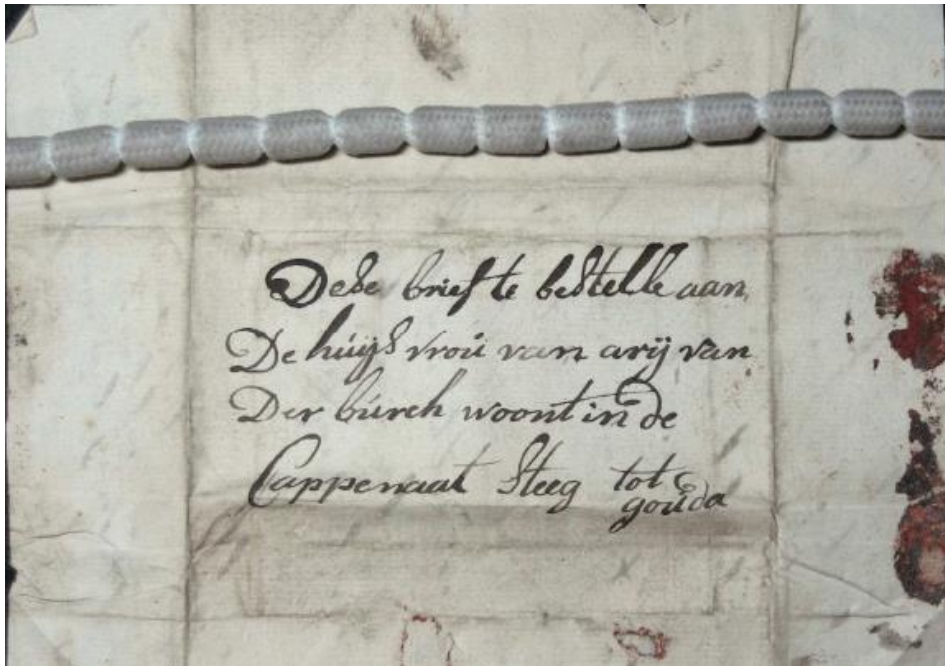 Dese brief te bestelle aan
De húijs vroú van arij van
Der búrch woont in de
Cappenaat Steeg tot
goúda